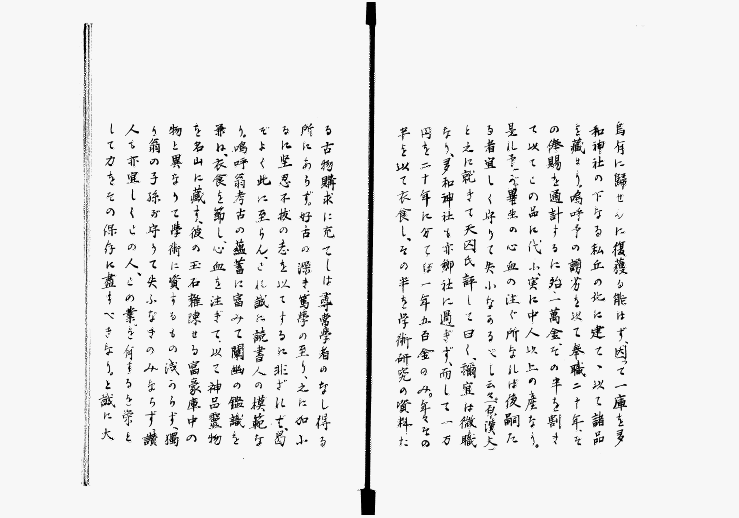 烏有に歸せんに復獲る能はず、因って一庫を多
和神社の下なる私丘の北に建て、以て諸品
を藏せり。嗚呼予の調芳を以て奉職二十年、そ
の俸賜を通計するに殆二萬金、その半を割き
て以てこの品に代ふ、実に中人以上の産なり。
是れ予が畢生の心血の注ぐ所なれば後嗣た
る者宜しく守りて失ふなかるべし云々(原漢文)
と之に就きて天囚氏評して曰く、禰宜は微職
なり、多和神社も亦郷社に過ぎず、而して一万
円を二十年に分てば一年五百金のみ。年々その
半を以て衣食し、その半を学術研究の資料た
る古物購求に充てしは尋常學者のなし得る
所にあらず。好古の深き篤學の至り之に加ふ
るに堅忍不抜の志を以てするに非ざれば、曷
ぞよく此に至らん、これ誠に読書人の模範な
り。嗚呼翁考古の蘊蓄に富みて闡幽の鑑識を
兼ね、衣食を節し心血を注ぎて、以て神品霊物
を名山に藏す、彼の玉石雜陳せる富豪庫中の
物と異なりて學術に資するもの浅からず、獨
り翁の子孫お守りて失ふなきのみならず、讃
人も亦宜しくこの人、この業を有するを榮と
して力をその保存に盡すべきなり。と誠に大